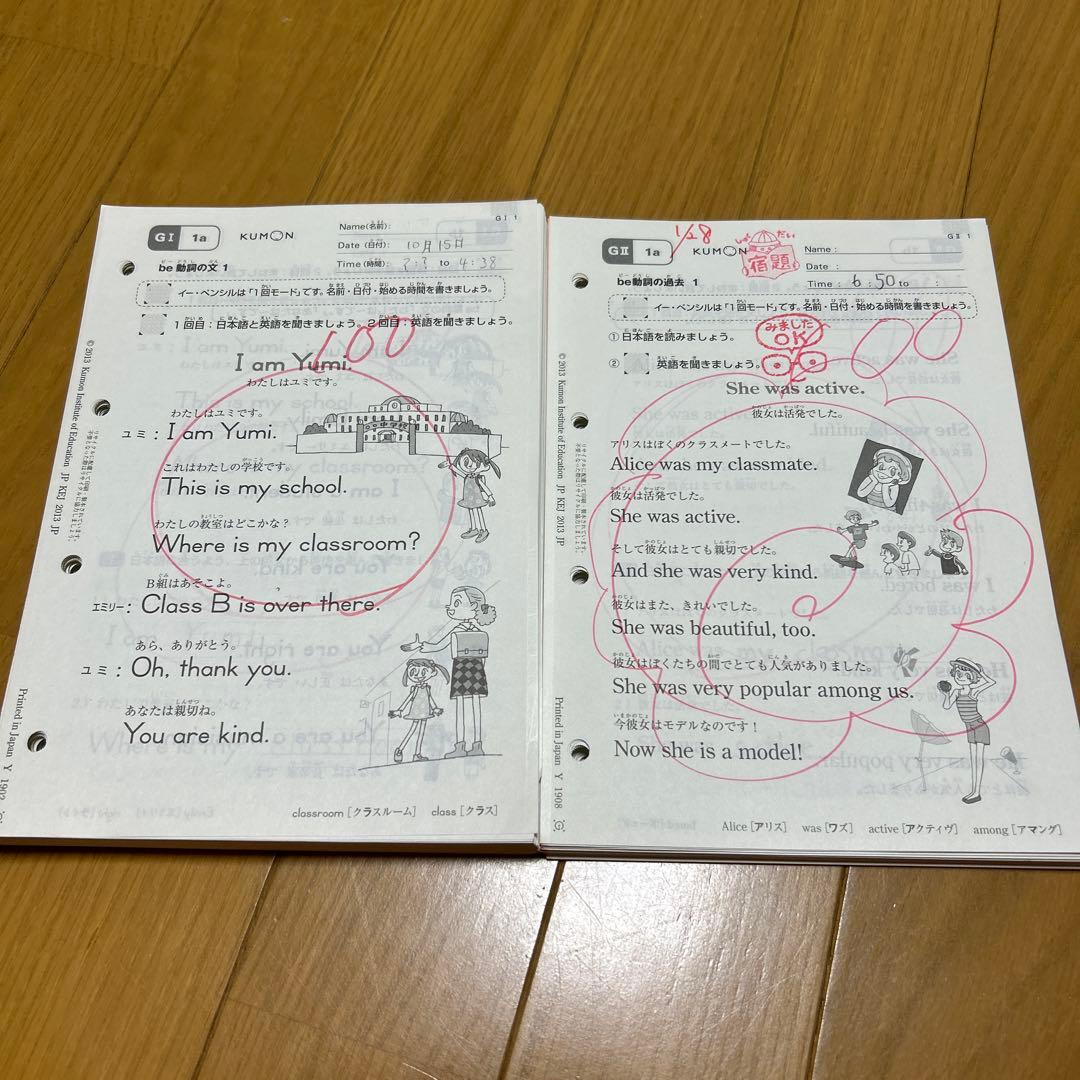 GⅠ 1
GⅠ 1a KUMON
Name(名前):
Date(日付): 10月15日
Time(時間): ?:? to 4:38
be動詞の文 1
イー・ペンシルは「1回モード」です。名前・日付・始める時間を書きましょう。
1回目:日本語と英語を聞きましょう。2回目:英語を聞きましょう。
100
I am Yumi.
わたしはユミです。
わたしはユミです。
ユミ: I am Yumi.
中学校
これはわたしの学校です。
This is my school.
わたしの教室はどこかな?
Where is my classroom?
B組はあそこよ。
エミリー: Class B is over there.
あら、ありがとう。
ユミ: Oh, thank you.
あなたは親切ね。
You are kind.
classroom[クラスルーム] class[クラス]
© 2013 Kumon Institute of Education JP KEJ 2013 JP
Printed in Japan Y 1902
GⅡ 1
GⅡ 1a KUMON
1/28
宿題
Name :
Date :
Time : 6:50 to :
be動詞の過去 1
イー・ペンシルは「1回モード」です。名前・日付・始める時間を書きましょう。
①日本語を読みましょう。
② 英語を聞きましょう。
みました
OK
She was active.
彼女は活発でした。
アリスはぼくのクラスメートでした。
Alice was my classmate.
彼女は活発でした。
She was active.
そして彼女はとても親切でした。
And she was very kind.
彼女はまた、きれいでした。
She was beautiful, too.
彼女はぼくたちの間でとても人気がありました。
She was very popular among us.
今彼女はモデルなのです!
Now she is a model!
Alice[アリス] was[ワズ] active[アクティヴ] among[アマング]
© 2013 Kumon Institute of Education JP KEJ 2013 JP
Printed in Japan Y 1908